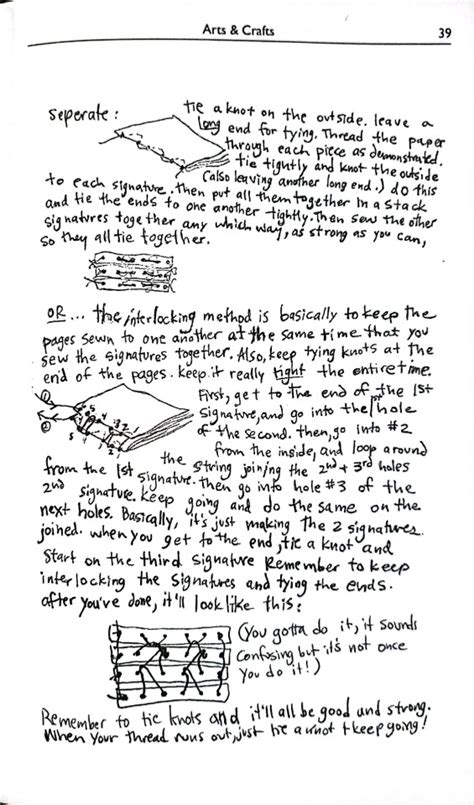 Arts & Crafts 39
seperate: tie a knot on the outside. leave a
long end for tying. Thread the paper
through each piece as demonstrated.
tie tightly and knot the outside
(also leaving another long end.) do this
to each signature. Then put all them together in a stack
and tie the ends to one another tightly. Then sew the other
signatures together any which way, as strong as you can,
so they all tie together.
OR... the interlocking method is basically to keep the
pages sewn to one another at the same time that you
sew the signatures together. Also, keep tying knots at the
end of the pages. keep it really tight the entire time.
First, get to the end of the 1st
signature, and go into the 1 hole
of the second. then, go into #2
from the inside, and loop around
the string joining the 2nd + 3rd holes
from the 1st signature. then go into hole #3 of the
2nd signature. keep going and do the same on the
next holes. Basically, it's just making the 2 signatures
joined. when you get to the end, tie a knot and
start on the third signature Remember to keep
interlocking the signatures and tying the ends.
after you've done, it'll look like this:
(You gotta do it, it sounds
confusing but it's not once
you do it!)
Remember to tie knots and it'll all be good and strong.
When your thread runs out, just tie a knot + keep going!